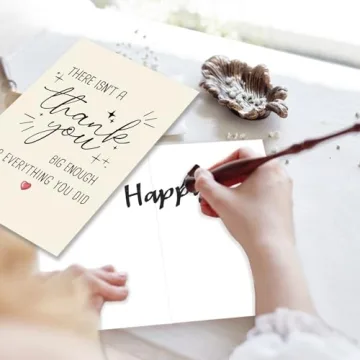 THERE ISN'T A
thank
you
BIG ENOUGH
R EVERYTHING YOU DID
Happ